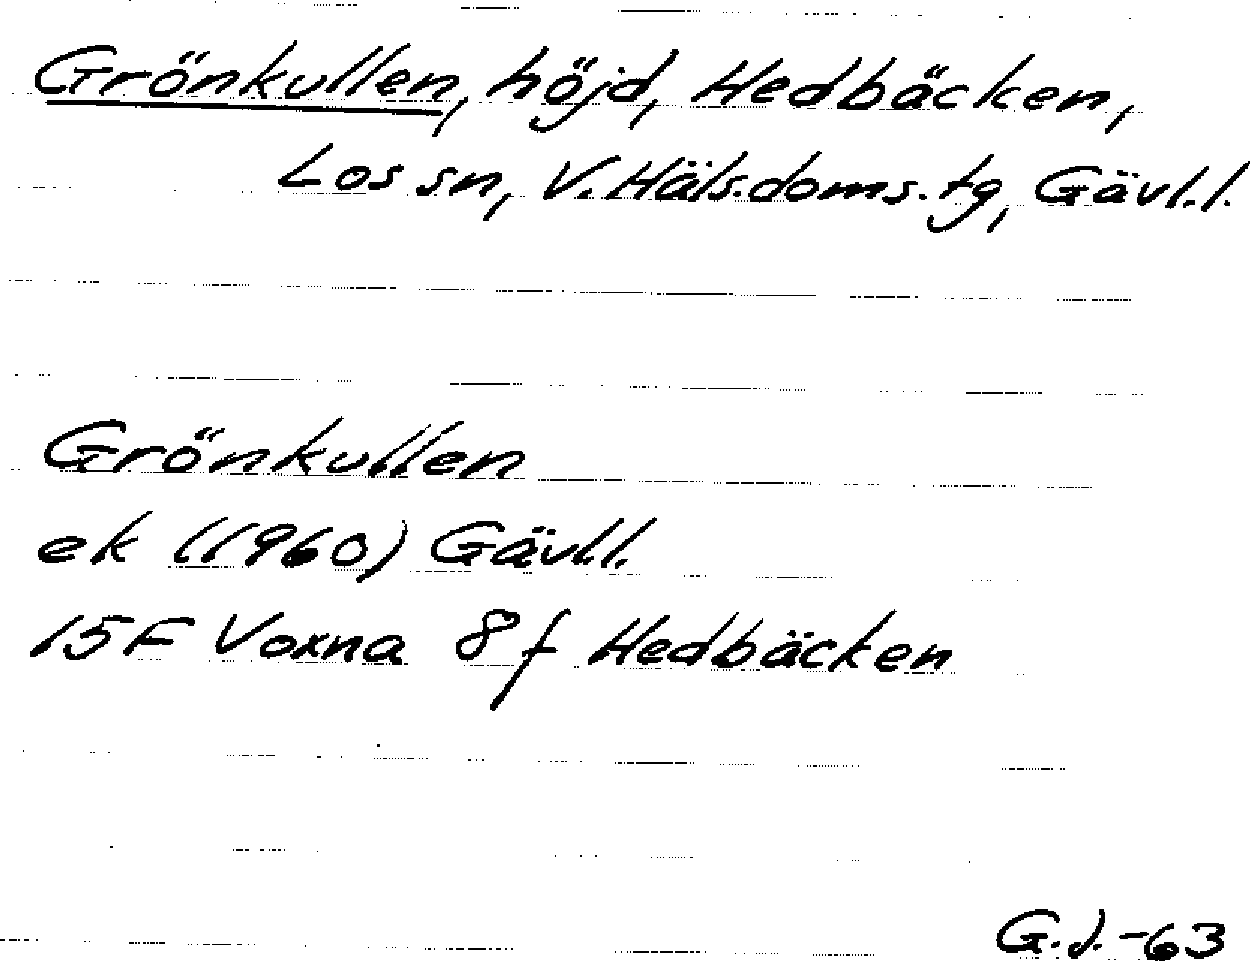 Grönkullen, höjd, Hedbäcken,
Los sn, V. Häls. doms. tg, Gävl. l.
Grönkullen
ek (1960) Gävl.l.
15F Voxna 8f Hedbäcken
G.J. -63